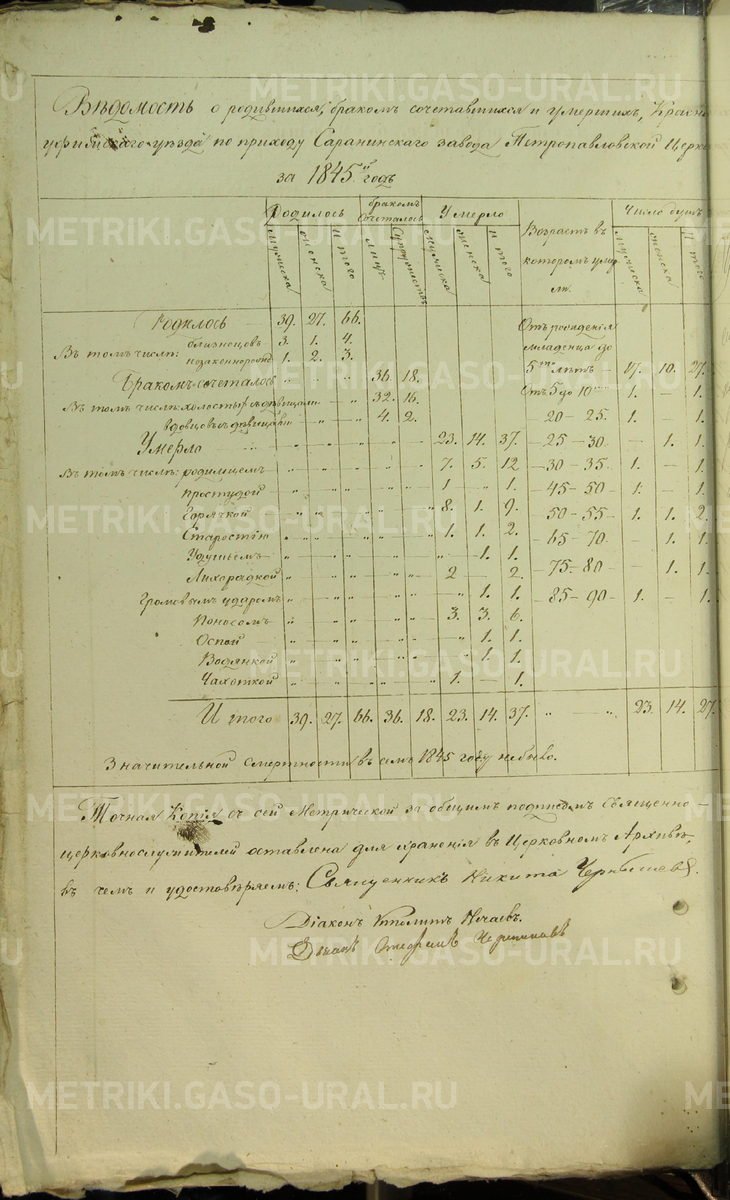 Вѣдомость о родившихся, бракомъ сочетавшихся и умершихъ, Красно
уфимскаго уѣзда по приходу Саранинскаго завода Петропавловской Церкви
за 1845й годъ
Родилось бракомъ сочеталось Умерло Возрастъ въ которомъ умерли. Число душъ
Мужеска женска И того лицъ Супружествъ Мужеска женска и того Мужеска женска И того
Родилось 39. 27. 66. Отъ рожденія
Въ томъ числѣ: близнецовъ 3. 1. 4. младенца до
незаконнорожд 1. 2. 3. 5ти лѣтъ 17. 10. 27.
Бракомъ сочеталось „ „ „ 36. 18. Отъ 5 до 10 1. — 1.
Въ томъ числѣ: холостыхъ съ дѣвицами „ 32. 16. 20 — 25. 1. 1.
вдовцовъ съ дѣвицами 4. 2.
Умерло „ „ „ „ 23. 14. 37. 25 — 30 — 1. 1.
Въ томъ числѣ: родимцемъ „ „ „ „ „ 7. 5. 12 30 — 35. 1. — 1.
простудой „ „ „ „ „ 1 „ 1. 45 — 50 1. 1.
Горячкой „ „ „ „ „ 8. 1. 9. 50 — 55 — 1. 1. 2.
Старостію „ „ „ „ „ 1. 1. 2. 65 — 70. — 1. 1.
Удушьемъ „ „ „ „ „ „ 1. 1.
Лихорадкой „ „ „ „ „ 2 — 2. 75 — 80 1. 1.
Громовымъ ударомъ „ „ „ „ „ „ 1. 1. 85 — 90 1. — 1.
Поносомъ „ „ „ „ „ 3. 3. 6.
Оспой „ „ „ „ „ „ 1. 1.
Водянкой „ „ „ „ „ „ 1. 1.
Чахоткой „ „ „ „ „ 1. — 1.
И того 39. 27. 66. 36. 18. 23. 14. 37. „ „ 23. 14. 27.
Значительной смертности въ семъ 1845 году небыло.
Точная Копія съ сей Метрической за общимъ подписомъ Священно-
церковнослужителей оставлена для храненія въ Церковномъ Архивѣ,
въ чемъ и удостовѣряемъ: Священникъ Никита Чернышевъ.
Діаконъ Ипполитъ Нечаевъ.
METRIKI.GASO-URAL.RU